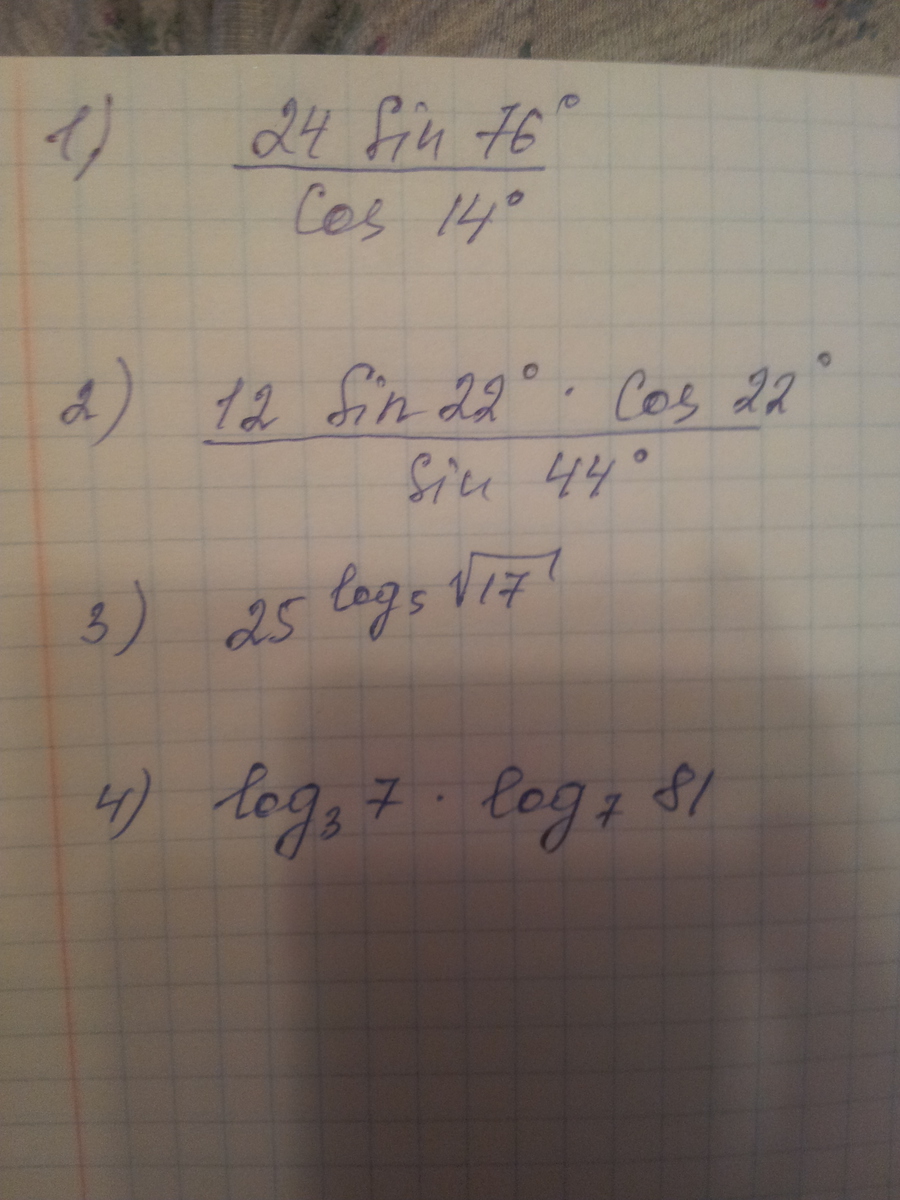 1) 24 Sin 76°
Cos 14°
2) 12 Sin 22° · Cos 22°
Sin 44°
3) 25^{log_5 √17}
4) log_3 7 · log_7 81